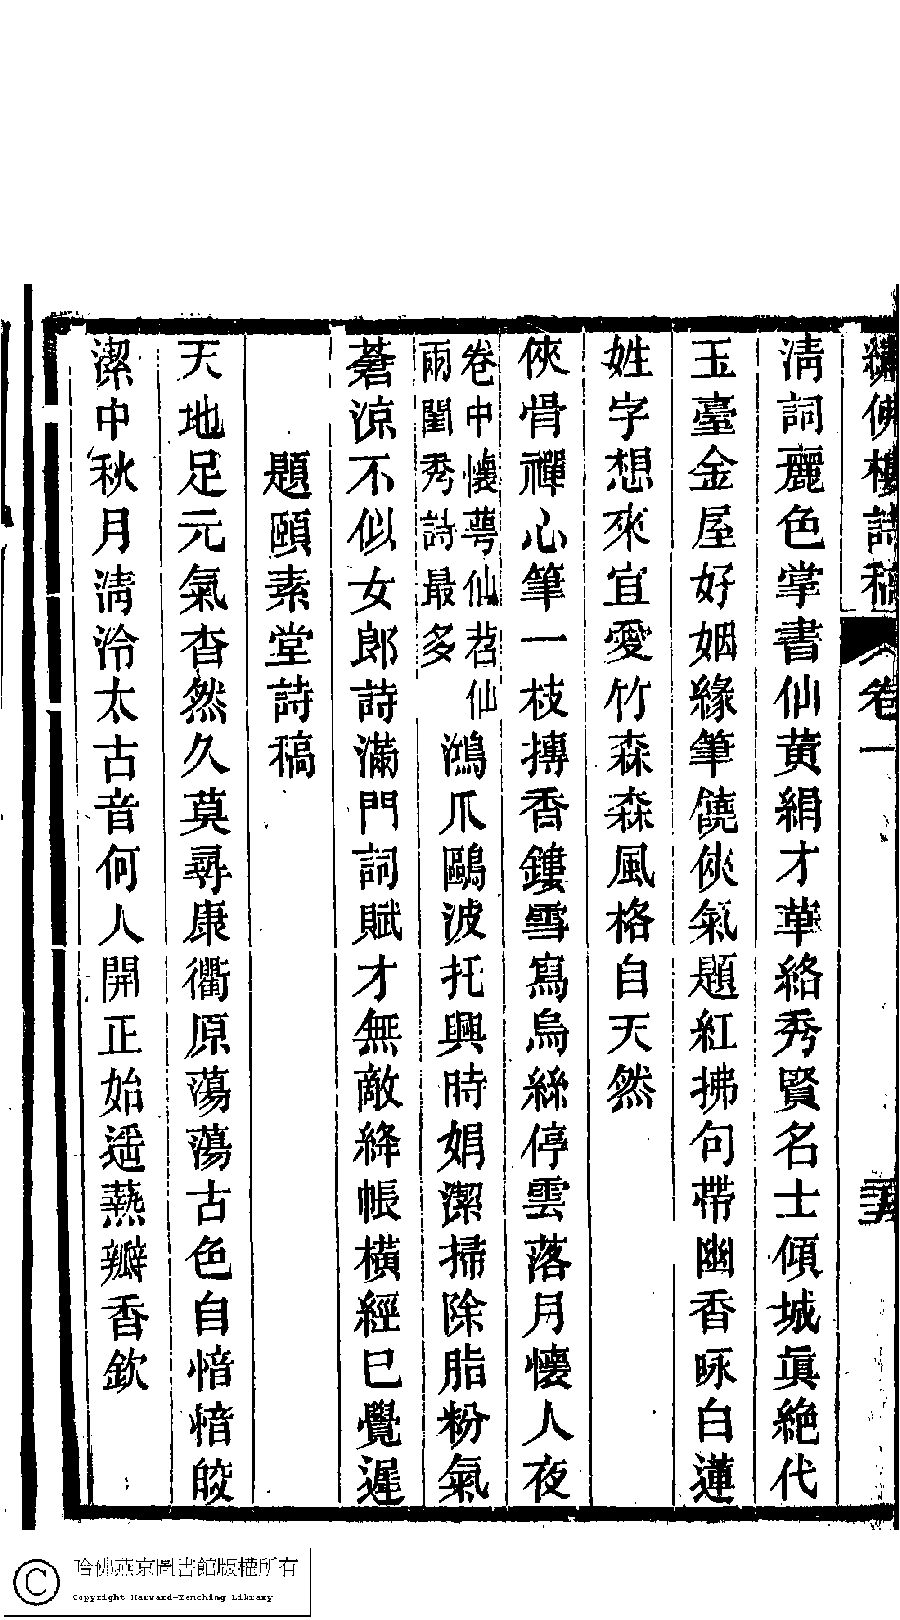 繡佛樓詩稿 卷一
清詞麗色掌書仙黄絹才華絡秀賢名士傾城眞絕代
玉臺金屋好姻緣筆饒俠氣題紅拂句帶幽香咏白蓮
姓字想來宜愛竹森森風格自天然
俠骨禪心筆一枝摶香鏤雪寫烏絲停雲落月懷人夜
卷中懷萼仙苕仙
兩閨秀詩最多
鴻爪鷗波托興時娟潔掃除脂粉氣
蒼涼不似女郎詩滿門詞賦才無敵絳帳橫經巳覺遲
題頤素堂詩稿
天地足元氣杳然久莫尋康衢原蕩蕩古色自愔愔皎
潔中秋月清泠太古音何人開正始遥爇瓣香欽
哈佛燕京圖書館版權所有
Copyright Harvard-Yenching Library